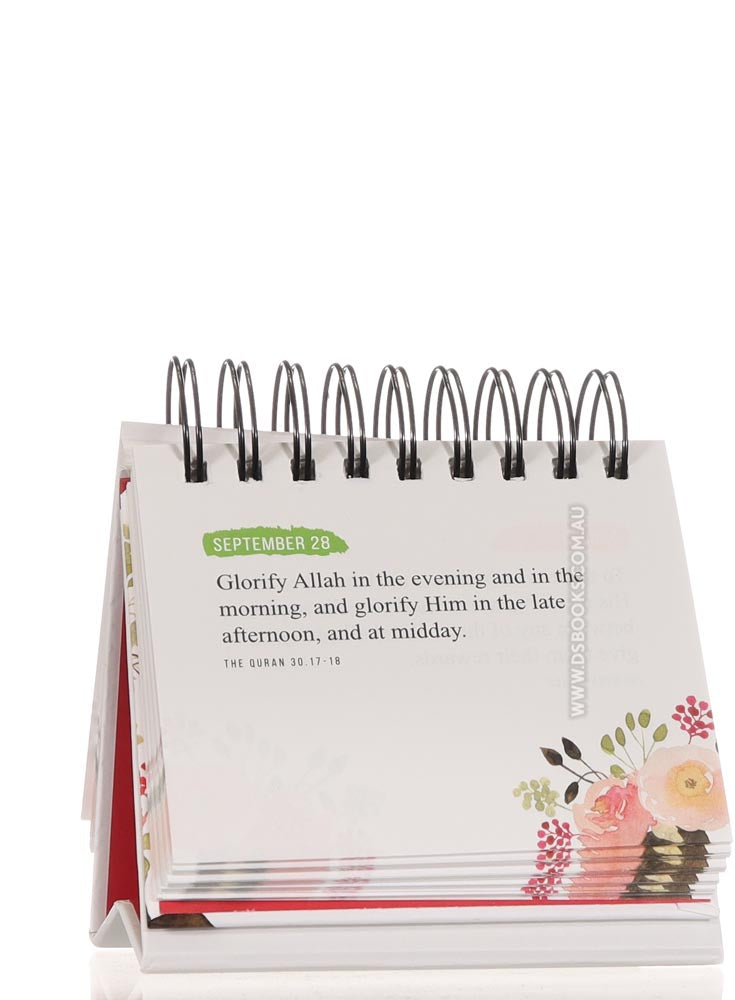 SEPTEMBER 28
Glorify Allah in the evening and in the
morning, and glorify Him in the late
afternoon, and at midday.
THE QURAN 30.17-18
WWW.DSBOOKS.COM.AU